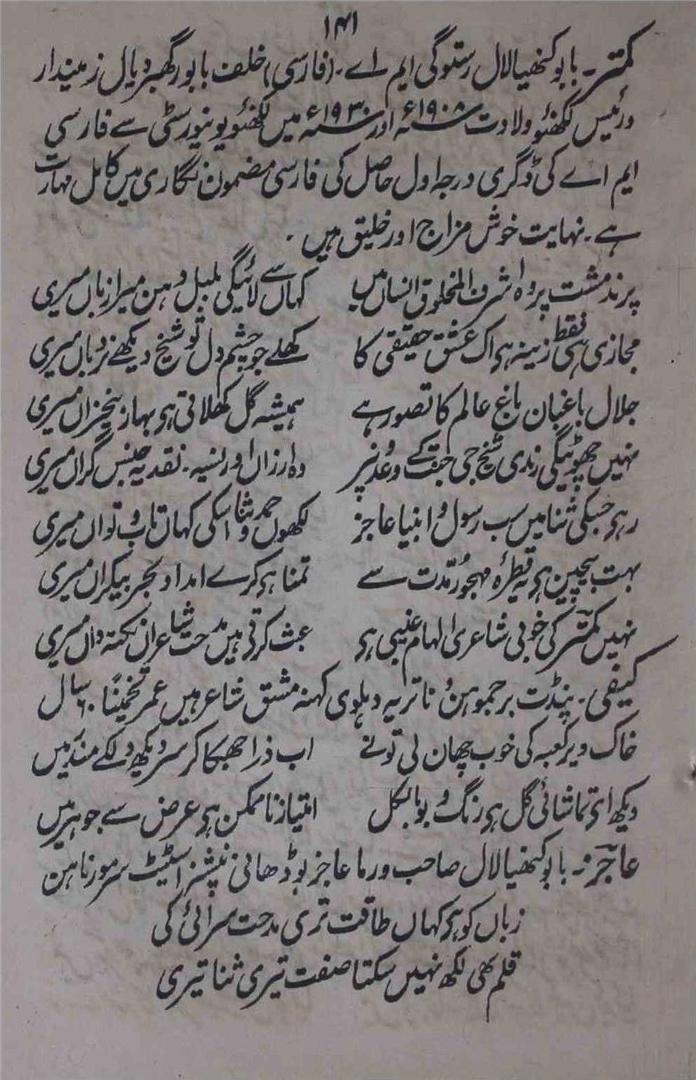 ۱۴۱
کمتر۔ بابو کنھیا لال رستوگی ایم اے۔ (فارسی) خلف بابو رگھبر دیال زمیندار
ورئیس لکھنؤ ولادت ۱۹۰۸ء اور ۱۹۳۰ء میں لکھنؤ یونیورسٹی سے فارسی
ایم اے کی ڈگری درجہ اول حاصل کی فارسی مضمون نگاری میں کامل مہارت
ہے۔ نہایت خوش مزاج اور خلیق ہیں۔
پرند مشت پر وہ اشرف المخلوق انساں میں کہاں سے لائیگی بلبل دہن میرا زباں میری
مجازی ہی فقط زینہ ہو اک عشق حقیقی کا کھلے جو چشم دل تو شیخ دیکھے نردباں میری
جلال باغبان باغ عالم کا تصور ہے ہمیشہ گل کھلاتی ہو بہار بیخزاں میری
نہیں چھوٹیگی رندی شیخ جی جنت کے وعدوں پر وہ ارزاں اور نسیہ۔ نقد یہ جنس گراں میری
رہو جسکی ثنا میں سب رسول و انبیا عاجز لکھوں حمد و ثنا اسکی کہاں تاب و تواں میری
بہت بیچین ہو یہ قطرۂ مہجور مدت سے تمنا ہو کرے امداد بحر بیکراں میری
نہیں کمتر کی خوبی شاعری الہام غیبی ہو عبث کرتی ہیں مدحت شاعران نکتہ داں میری
کیفی۔ پنڈت برجموہن دتاتریہ دہلوی کہنہ مشق شاعر ہیں عمر تخمیناً ۶۰ سال
خاک دیر و کعبہ کی خوب چھان لی تونے اب ذرا جھکا کر سر دیکھ دلکے مندر میں
دیکھ ای تماشائی گل ہو رنگ و بو بالکل امتیاز ناممکن ہو عرض سے جوہر میں
عاجز۔ بابو کنھیا لال صاحب ورما عاجز لوڈھانی پنشنر اسٹیٹ سرمور ناہن
زباں کو ہو کہاں طاقت تری مدحت سرائی کی
قلم بھی لکھ نہیں سکتا صفت تیری ثنا تیری